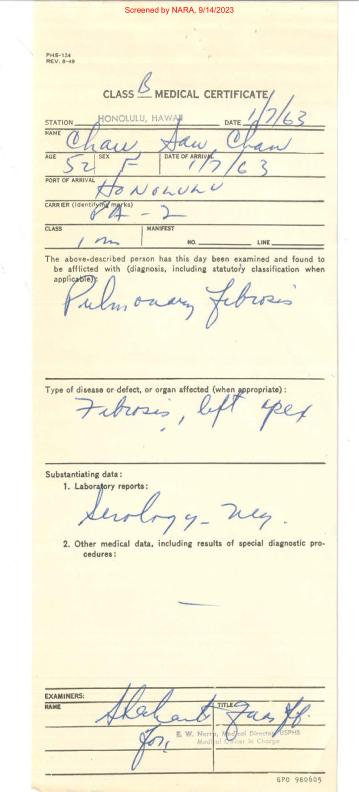 Screened by NARA, 9/14/2023
PHS-124
REV. 8-49
CLASS B MEDICAL CERTIFICATE
STATION HONOLULU, HAWAII DATE 1/7/63
NAME Chan Saw Chan
AGE 52 SEX F DATE OF ARRIVAL 1/7/63
PORT OF ARRIVAL HONOLULU
CARRIER (Identifying marks)
PA - 2
CLASS 1 MANIFEST
NO. LINE
The above-described person has this day been examined and found to
be afflicted with (diagnosis, including statutory classification when
applicable):
Pulmonary fibrosis
Type of disease or defect, or organ affected (when appropriate):
Fibrosis, left apex
Substantiating data:
1. Laboratory reports:
Serology - Neg.
2. Other medical data, including results of special diagnostic pro-
cedures:
—
EXAMINERS:
NAME TITLE
for: E. W. Medical Director USPHS
Medical Officer in Charge
GPO 980605